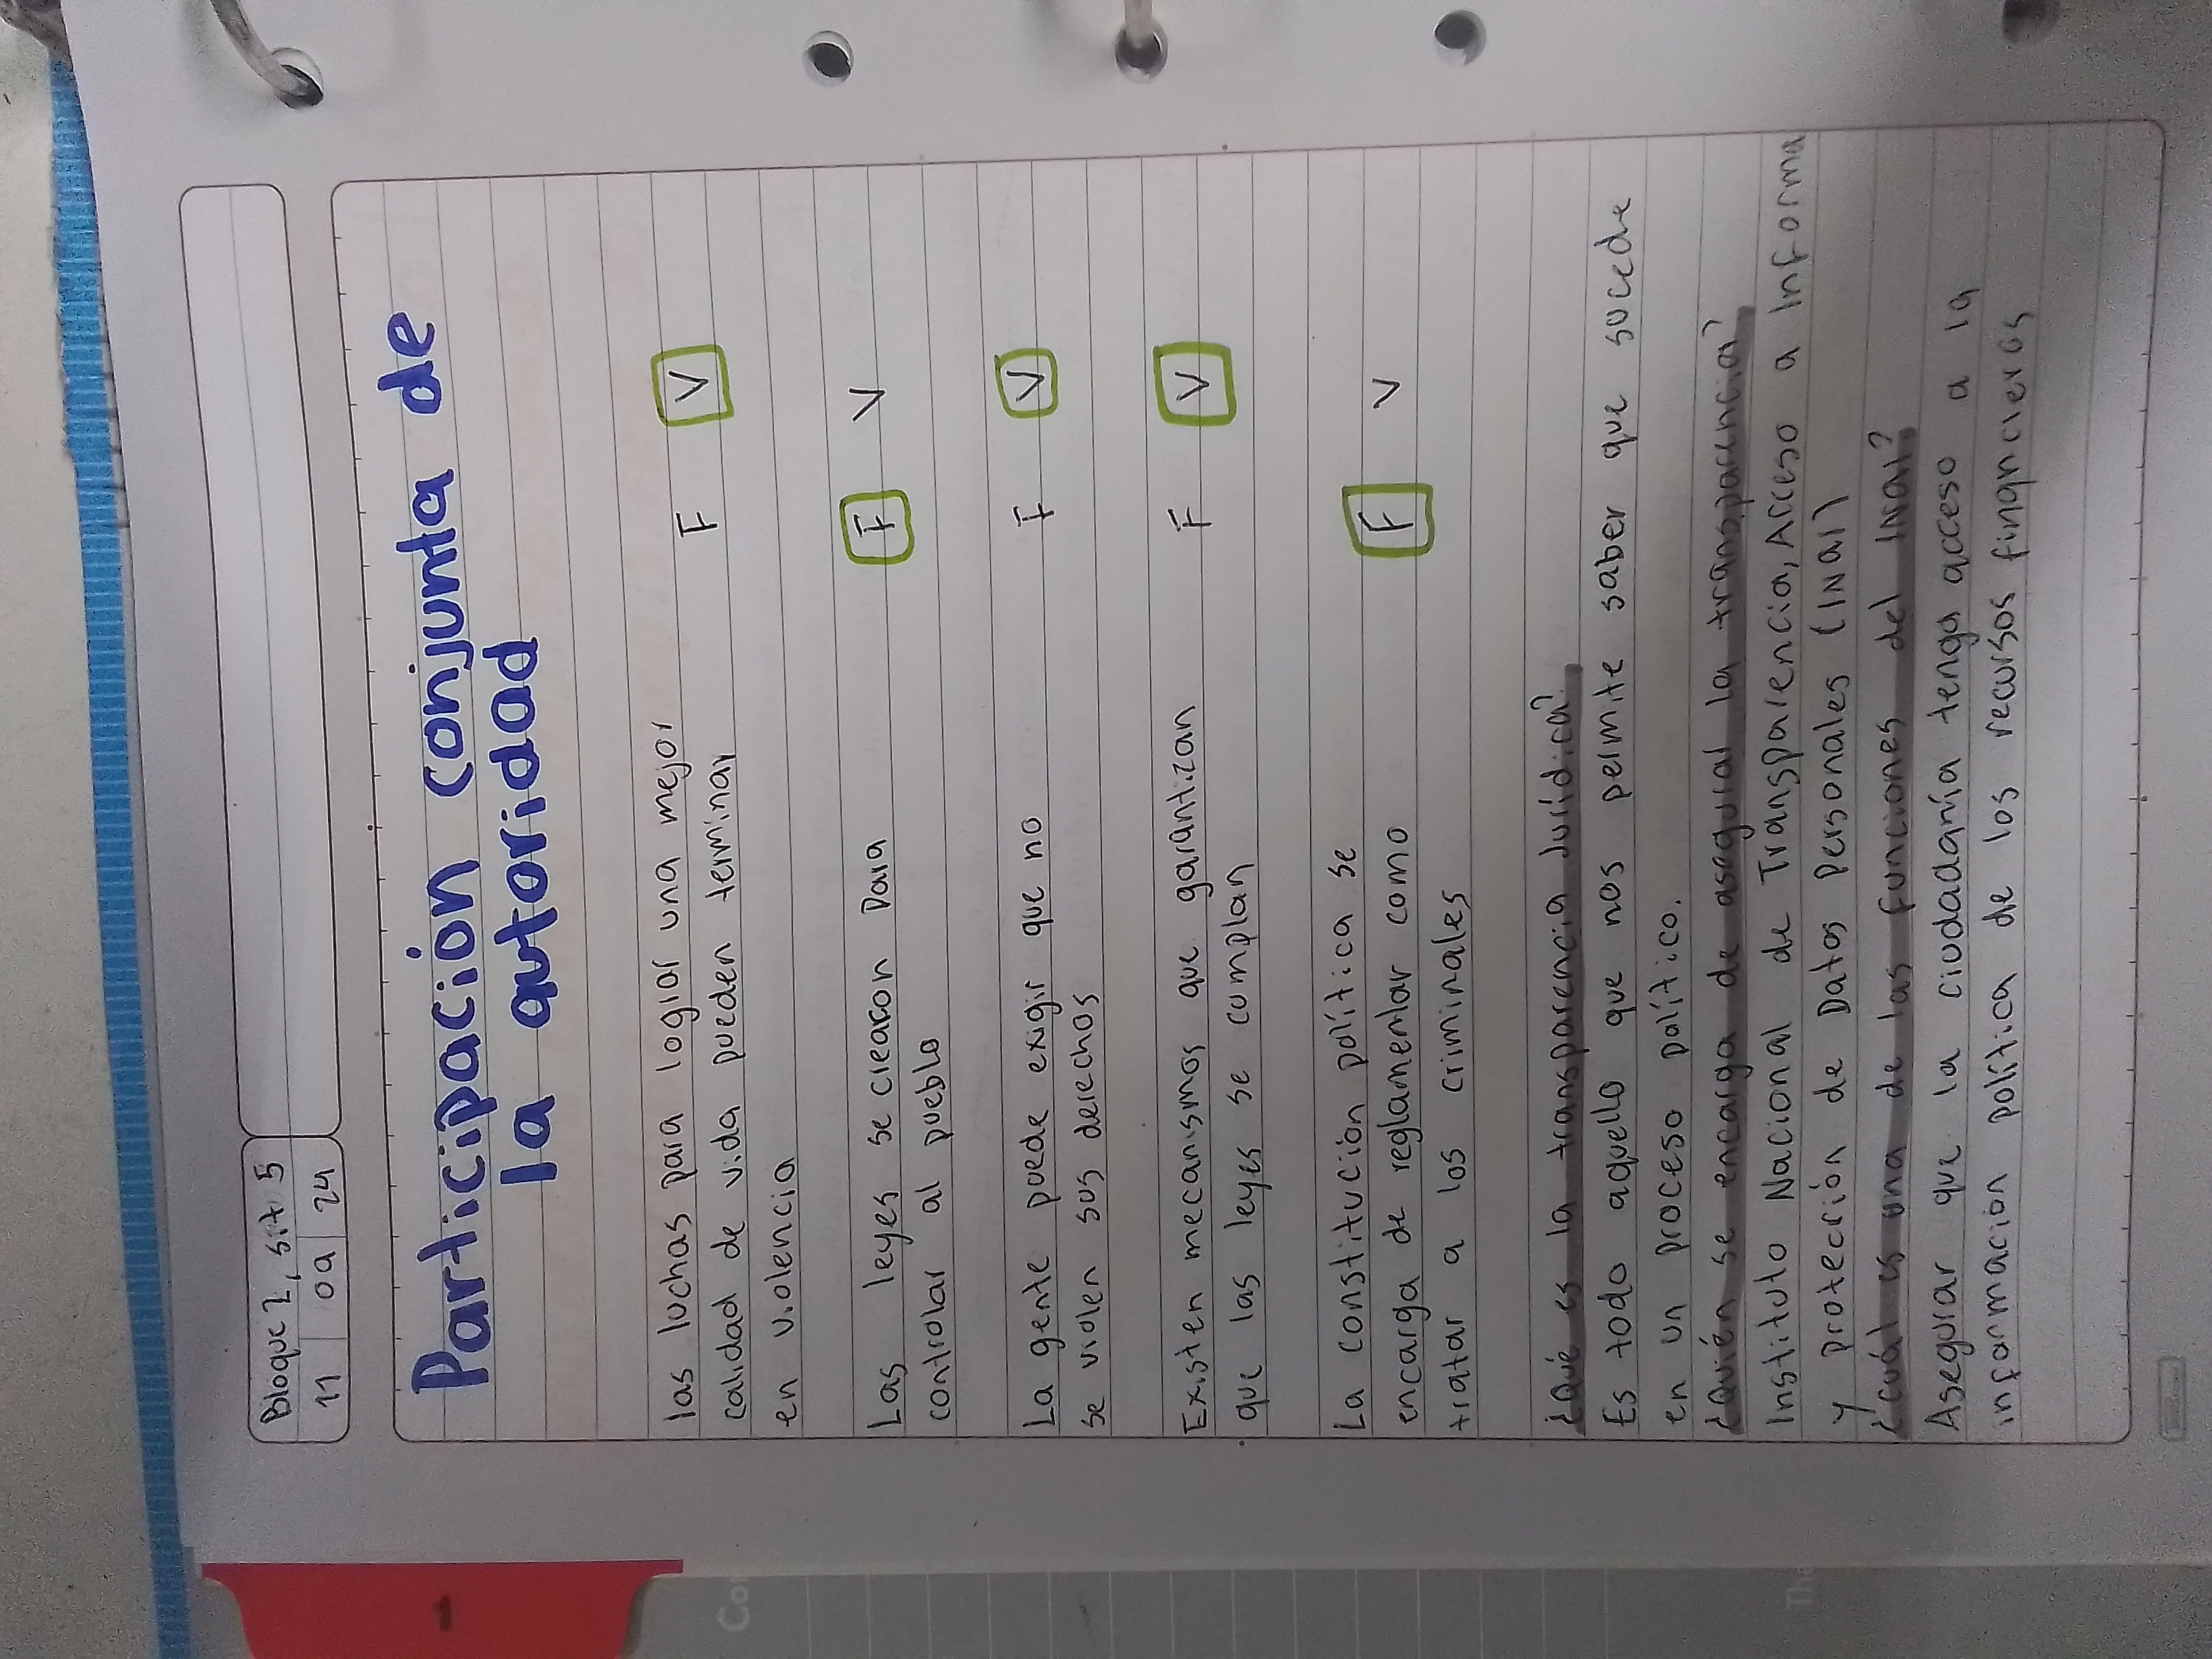 Bloque 2, sit 5
11 09 24
Participación conjunta de
la autoridad
las luchas para lograr una mejor
calidad de vida pueden terminar F V
en violencia
Las leyes se crearon para
controlar al pueblo F V
La gente puede exigir que no
se violen sus derechos F V
Existen mecanismos que garantizan F V
que las leyes se complan
La constitución política se
encarga de reglamentar como F V
tratar a los criminales
¿Qué es la transparencia Jurídica?
Es todo aquello que nos permite saber que sucede
en un proceso político.
¿Quién se encarga de asegurar la transparencia?
Instituto Nacional de Transparencia, Acceso a Informa
y protección de Datos Personales (INAI)
¿cuál es una de las funciones del INAI?
Asegurar que la ciudadanía tenga acceso a la
información política de los recursos financieros
1
Co
Th